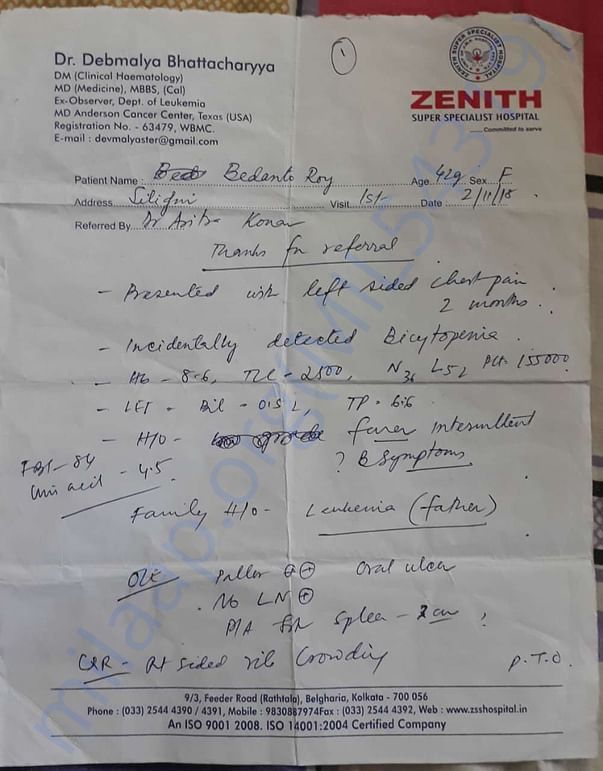 1
Dr. Debmalya Bhattacharyya
DM (Clinical Haematology)
MD (Medicine), MBBS, (Cal)
Ex-Observer, Dept. of Leukemia
MD Anderson Cancer Center, Texas (USA)
Registration No. - 63479, WBMC.
E-mail : devmalyaster@gmail.com
ZENITH SUPER SPECIALIST HOSPITAL
ZENITH
SUPER SPECIALIST HOSPITAL
......Committed to serve
Patient Name : Bedanto Roy Age 42y Sex F
Address Siliguri Visit 1st Date 2/11/18
Referred By Dr Aritra Konar
Thanks for referral
- Presented with left sided chest pain
2 months.
- Incidentally detected Bicytopenia.
- Hb - 8.6, TLC - 2500, N36 L52 PLt- 155000
- LFT - Bil - 0.52, TP = 6.6
- H/O - fever intermittent
FBS - 84
? B Symptoms
Uric acid - 4.5
Family H/O - Leukemia (father)
O/E Pallor ⊕ ⊕ Oral ulcer
. No LN ⊕
P/A Spleen - 2 cm ?
CXR - Rt sided rib Crowding
P.T.O.
9/3, Feeder Road (Rathtala), Belgharia, Kolkata - 700 056
Phone : (033) 2544 4390 / 4391, Mobile : 9830887974Fax : (033) 2544 4392, Web : www.zsshospital.in
An ISO 9001 2008. ISO 14001:2004 Certified Company